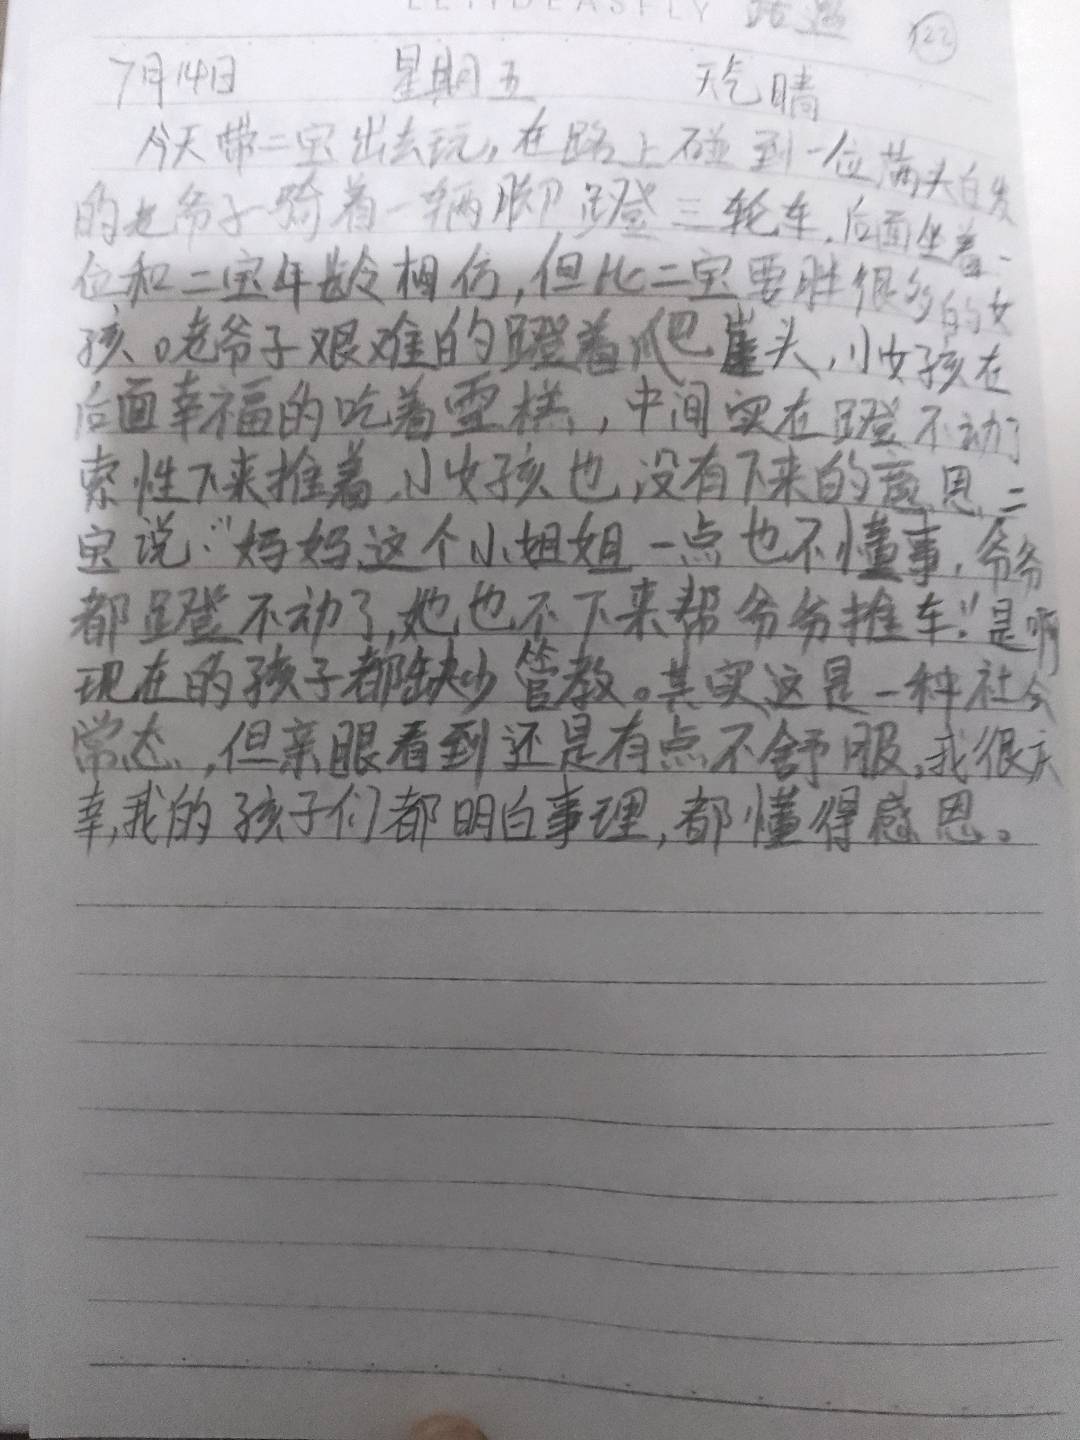 (122)
7月14日 星期五 天气晴
今天带二宝出去玩,在路上碰到一位满头白发
的老爷子骑着一辆脚蹬三轮车,后面坐着一
位和二宝年龄相仿,但比二宝要胖很多的女
孩。老爷子艰难的蹬着爬崖头,小女孩在
后面幸福的吃着雪糕,中间实在蹬不动了
索性下来推着,小女孩也没有下来的意思,二
宝说:"妈妈,这个小姐姐一点也不懂事,爷爷
都蹬不动了,她也不下来帮爷爷推车!"是啊
现在的孩子都缺少管教。其实这是一种社会
常态,但亲眼看到还是有点不舒服,我很庆
幸,我的孩子们都明白事理,都懂得感恩。